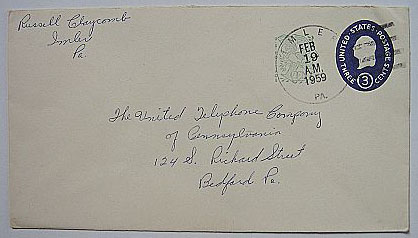 Russell Claycomb
Imler
Pa.
IMLER
FEB
19
A.M.
1959
PA.
UNITED STATES POSTAGE
3
THREE CENTS
The United Telephone Company
of Pennsylvania
124 S. Richard Street
Bedford Pa.